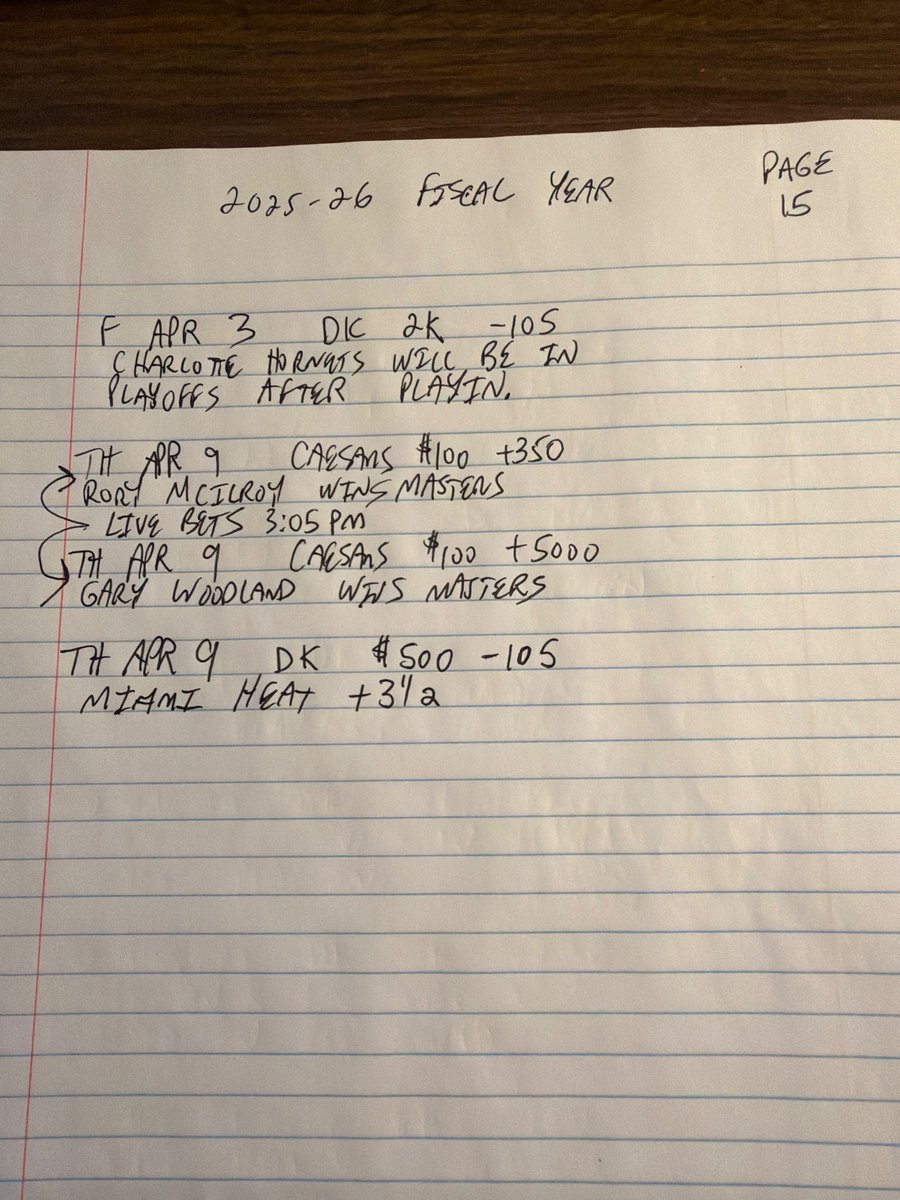 2025-26 FISCAL YEAR
PAGE
15
F APR 3 DK 2K -105
CHARLOTTE HORNETS WILL BE IN
PLAYOFFS AFTER PLAYIN.
TH APR 9 CAESARS $100 +350
RORY MCILROY WINS MASTERS
LIVE BETS 3:05 PM
TH APR 9 CAESARS $100 +5000
GARY WOODLAND WINS MASTERS
TH APR 9 DK $500 -105
MIAMI HEAT +3 1/2